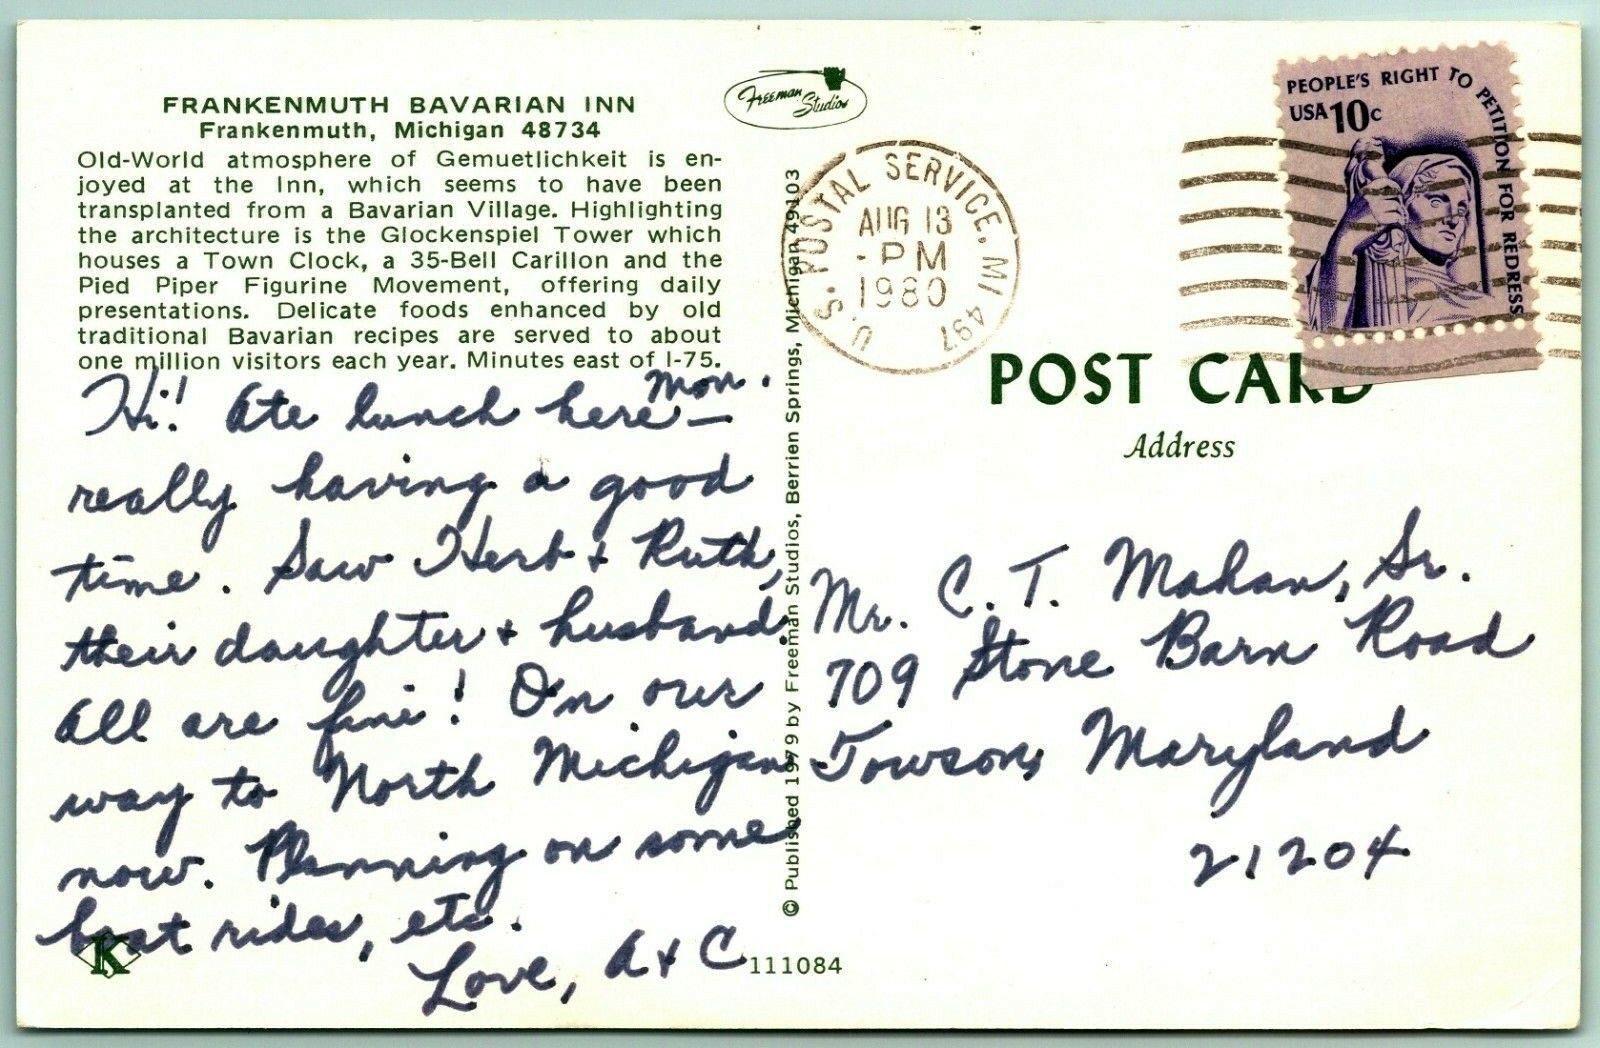 FRANKENMUTH BAVARIAN INN
Frankenmuth, Michigan 48734
Old-World atmosphere of Gemuetlichkeit is en-
joyed at the Inn, which seems to have been
transplanted from a Bavarian Village. Highlighting
the architecture is the Glockenspiel Tower which
houses a Town Clock, a 35-Bell Carillon and the
Pied Piper Figurine Movement, offering daily
presentations. Delicate foods enhanced by old
traditional Bavarian recipes are served to about
one million visitors each year. Minutes east of I-75.
Hi! Ate lunch here Mon. —
really having a good
time. Saw Herb & Ruth,
their daughter & husband.
All are fine! On our
way to North Michigan
now. Planning on some
boat rides, etc.
Love, A & C
K
Freeman Studios
© Published 1979 by Freeman Studios, Berrien Springs, Michigan 49103
111084
U.S. POSTAL SERVICE, MI 497
AUG 13
PM
1980
PEOPLE'S RIGHT TO PETITION FOR REDRESS
USA 10c
POST CARD
Address
Mr. C. T. Mahan, Sr.
709 Stone Barn Road
Towson, Maryland
21204